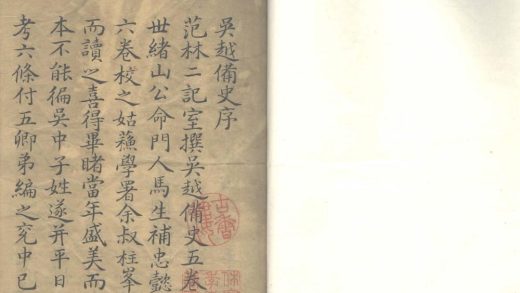 吳越備史序
范林二記室撰吳越備史五卷
世緒山公命門人馬生補忠懿
六卷校之姑蘓學署余叔柱峯
而讀之喜得畢睹當年盛美而
本不能徧吳中子姓遂并平日
考六條付五卿弟編之兖中已